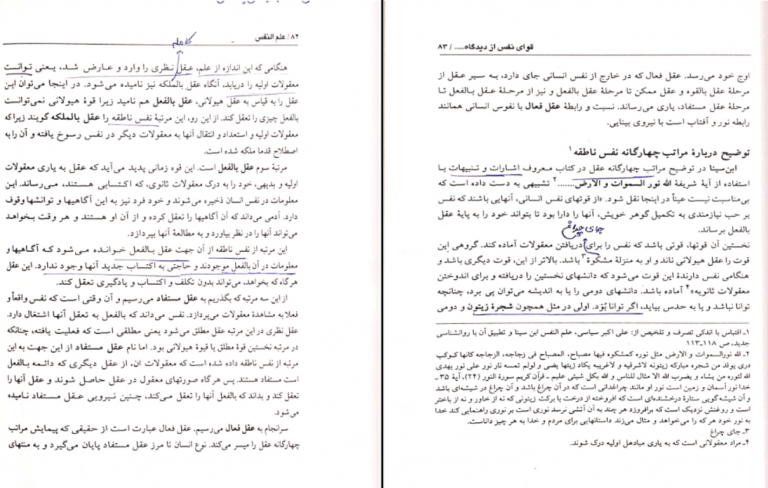 قوای نفس از دیدگاه..... / ۸۳
اوج خود می‌رسد. عقل فعال که در خارج از نفس انسانی جای دارد، به سیر عقل از
مرحلهٔ عقل بالقوه و عقل ممکن تا مرحلهٔ عقل بالفعل و نیز از مرحلهٔ عقل بالفعل تا
مرحلهٔ عقل مستفاد، یاری می‌رساند. نسبت و رابطهٔ عقل فعال با نفوس انسانی همانند
رابطه نور و آفتاب است با نیروی بینایی.
توضیح دربارهٔ مراتب چهارگانه نفس ناطقه ۱
ابن‌سینا در توضیح مراتب چهارگانه عقل در کتاب معروف اشارات و تنبیهات با
استفاده از آیهٔ شریفهٔ الله نور السموات و الارض.......۲ تشبیهی به دست داده است که
بی‌مناسبت نیست عیناً در اینجا نقل شود. «از قوتهای نفس انسانی، آنهایی باشند که نفس
بر حسب نیازمندی به تکمیل گوهر خویش، آنها را دارا بود تا بتواند خود را به پایهٔ عقل
بالفعل برساند.
جای چراغ
نخستین آن قوتها، قوتی باشد که نفس را برای دریافتن معقولات آماده کند. گروهی این
قوت را عقل هیولانی ناند و او به منزلهٔ مشکوة۳ باشد. بالاتر از این، قوت دیگری باشد و
هنگامی نفس دارندهٔ این قوت می‌شود که دانشهای نخستین را دریافته و برای اندوختن
معقولات ثانویه۴ آماده باشد. دانشهای دومی را یا به اندیشه می‌توان پی برد، چنانچه
توانا نباشد و یا به حدس بیابد، اگر توانا بُوَد. اولی در مثل همچون شجرهٔ زیتون و دومی
۱ـ اقتباس با اندکی تصرف و تلخیص از: علی اکبر سیاسی، علم النفس ابن سینا و تطبیق آن با روانشناسی
جدید، ص ۱۱۸ـ۱۱۳
۲ـ الله نورالسموات و الارض مثل نوره کمشکوه فیها مصباح، المصباح فی زجاجه، الزجاجه کانها کوکب
دری یوقد من شجره مبارکه زیتونه لاشرقیه و لاغربیه یکاد زیتها یضیی و لولم تمسه نار نور علی نور یهدی
الله لنوره من یشاء و یضرب الله الا مثال للناس و الله بکل شیئی علیم ـ قرآن کریم سورة النور (۲۴)، آیهٔ ۳۵ـ
خدا نور آسمان و زمین است نور او مانند چراغدانی است که در آن چراغ باشد و آن چراغ در شیشه‌ای باشد
و آن شیشه گویی ستارهٔ درخشنده‌ای است که افروخته از درخت با برکت زیتونی که نه از خاور و نه از باختر
است و روغنش نزدیک است که برافروزد هر چند به آن آتشی نرسد نوری است بر نوری راهنمایی کند خدا
به نور خود هر که را می‌خواهد و مثال می‌زند داستانهایی برای مردم و خدا به هر چیز داناست.
۳ـ جای چراغ
۴ـ مراد معقولاتی است که به یاری مبادهل اولیه درک شوند.
۸۴/ علم النفس
هنگامی که این اندازه از علم، عقل نظری را وارد و عارض شد، یعنی توانست
معقولات اولیه را دریابد، آنگاه عقل بالملکه نیز نامیده می‌شود. در اینجا می‌توان این
عقل را به قیاس به عقل هیولانی، عقل بالفعل هم نامید زیرا قوهٔ هیولانی نمی‌توانست
بالفعل چیزی را تعقل کند. از این رو، این مرتبهٔ نفس ناطقه را عقل بالملکه گویند زیرا که
معقولات اولیه و استعداد و انتقال آنها به معقولات دیگر در نفس رسوخ یافته و آن را به
اصطلاح قدما ملکه شده است.
مرتبهٔ سوم عقل بالفعل است. این قوه زمانی پدید می‌آید که عقل به یاری معقولات
اولیه و بدیهی، خود را به درک معقولات ثانوی، که اکتسابی هستند، می‌رساند. این
معلومات در نفس انسان ذخیره می‌شوند و خود فرد نیز به این آگاهیها و توانشها وقوف
دارد. آدمی می‌داند که آن آگاهیها را تعقل کرده و از آن او هستند و هر وقت بخواهد
می‌تواند آنها را در نظر بیاورد و به مطالعهٔ آنها بپردازد.
این مرتبه از نفس ناطقه از آن جهت عقل بالفعل خوانده می‌شود که آگاهیها و
معلومات در آن بالفعل موجودند و حاجتی به اکتساب جدید آنها وجود ندارد. این عقل
هرگاه که بخواهد، می‌تواند بدون تکلف و اکتساب و یادگیری تعقل کند.
از این سه مرتبه که بگذریم به عقل مستفاد می‌رسیم و آن وقتی است که نفس واقعاً و
فعلا به مشاهدهٔ معقولات می‌پردازد. نفس می‌داند که بالفعل به تعقل آنها اشتغال دارد.
عقل نظری در این مرتبه عقل مطلق می‌شود یعنی مطلقی است که فعلیت یافته، چنانکه
در مرتبه نخستین قوهٔ مطلق یا قوهٔ هیولانی بود. اما نام عقل مستفاد از این جهت به این
مرتبه از نفس ناطقه داده شده است که معقولات ان، از عقل دیگری که دائمه بالفعل
است مستفاد هستند. پس هر گاه صورتهای معقول در عقل حاصل شوند و عقل آنها را
تعقل کند و بداند که بالفعل آنها را تعقل می‌کند، چنین نیرویی عقل مستفاد نامیده
می‌شود.
سرانجام به عقل فعال می‌رسیم. عقل فعال عبارت است از حقیقی که پیمایش مراتب
چهارگانه عقل را میسر می‌کند. نوع انسان تا مرز عقل مستفاد پایان می‌گیرد و به منتهای